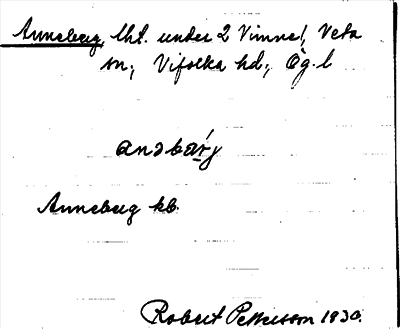 Anneberg, lht. under 2 Vinne!, Veta
sn., Vifolka hd., Ög. l
anəbærj
Anneberg kb.
Robert Pettersson 1930.